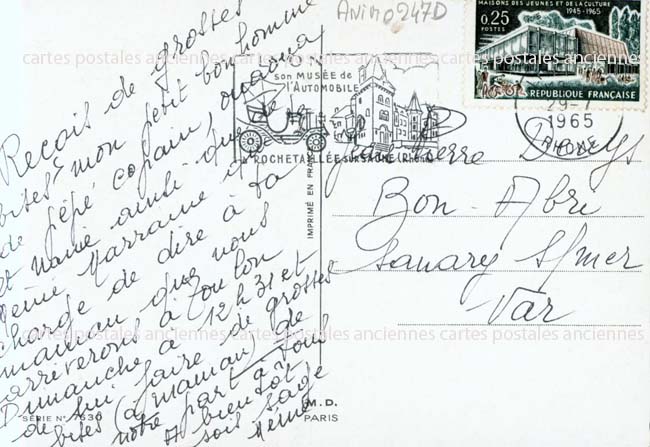 Anim0247D
MAISONS DES JEUNES ET DE LA CULTURE
1945-1965
0,25
POSTES
REPUBLIQUE FRANÇAISE
cartes postales anciennes cartes postales anciennes cartes postales anciennes cartes postales anciennes
son MUSÉE de
l'AUTOMOBILE
ROCHETAILLÉE sur SAÔNE (RHÔNE)
29-7
1965
RHONE
Recois de grosses
bises mon petit bonhomme
de pépé copain,
et mamie ainsi que de
Marraine
charge de dire à ta
maman que nous
arriverons à Toulon
Dimanche à 12h31 et
de lui faire de grosses
bises (à maman) de
notre part à Tous
A bientôt
sois sage
mémé
Pierre
Bon-Abri
Sanary S/mer
Var
IMPRIMÉ EN FRANCE
cartes postales anciennes cartes postales anciennes cartes postales anciennes cartes postales anciennes
SÉRIE N° 7630
M.D.
PARIS